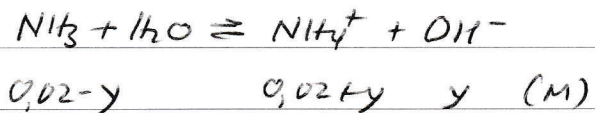 NH₃ + H₂O ⇌ NH₄⁺ + OH⁻
0,02-y 0,02+y y (M)